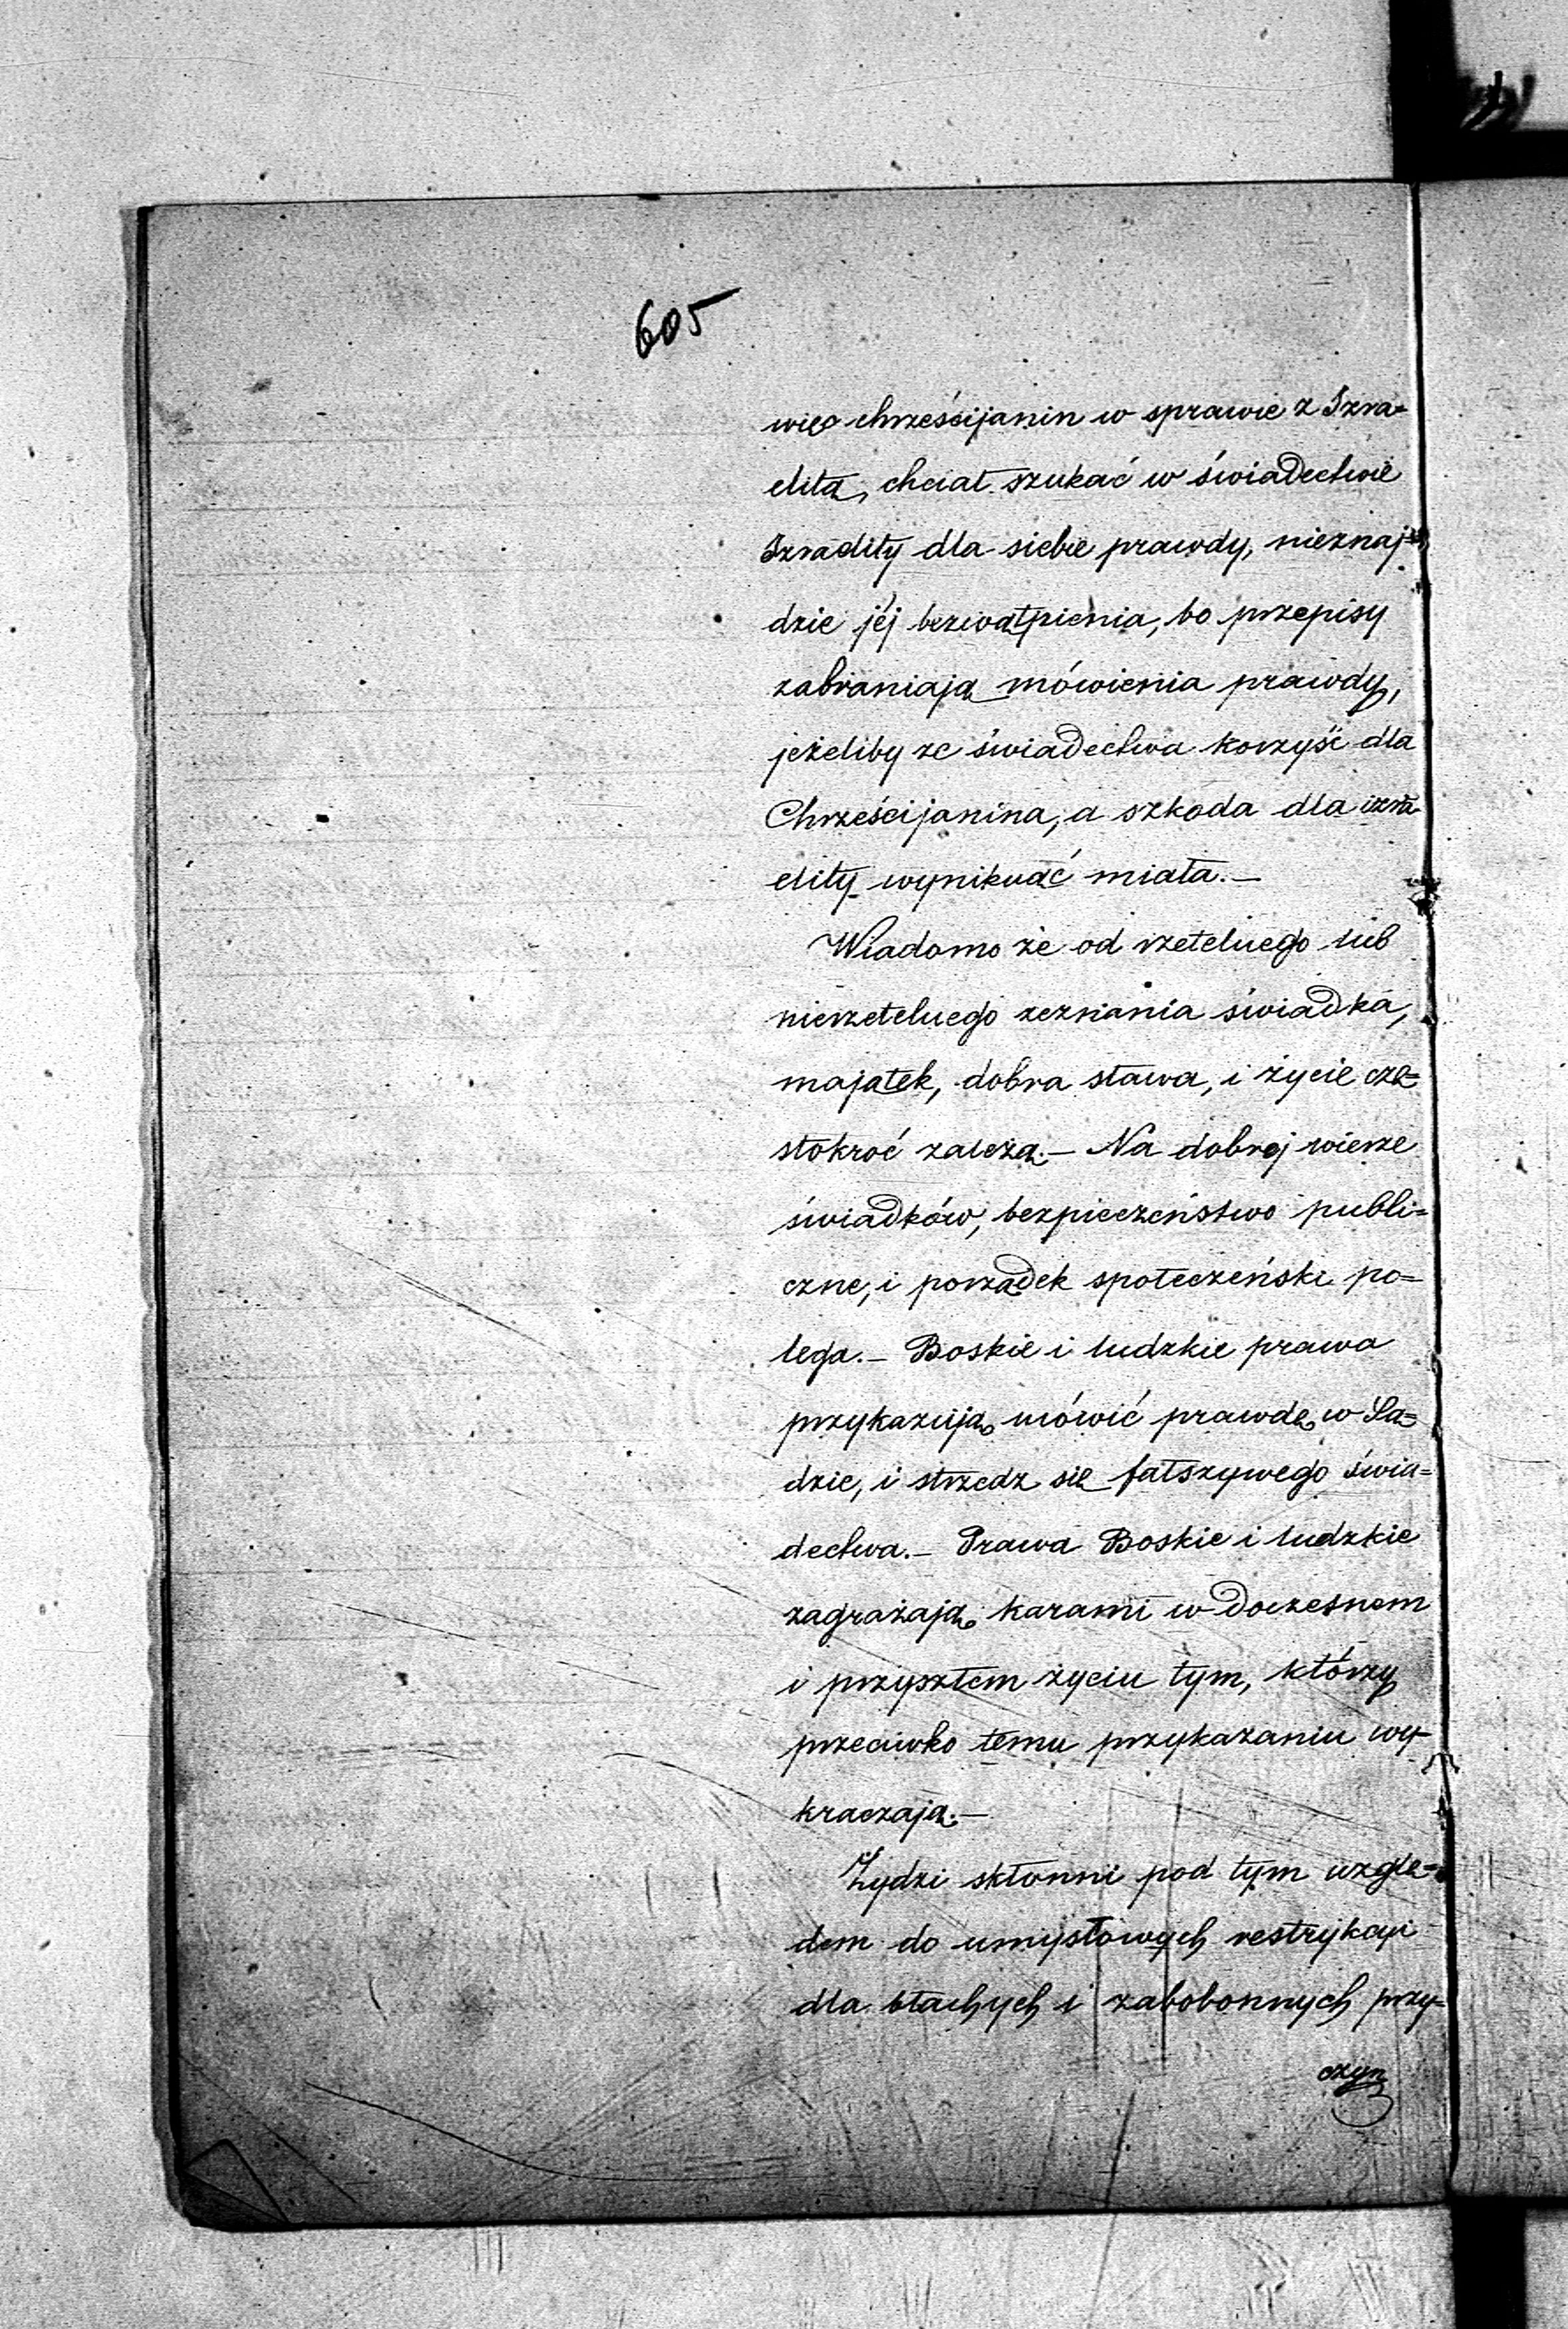 605
więc chrześcijanin w sprawie z Izra-
elitą, chciał szukać w świadectwie
Izraelity dla siebie prawdy, nieznaj-
dzie jéj bezwątpienia, bo przepisy
zabraniają mówienia prawdy,
jeżeliby ze świadectwa korzyść dla
Chrześcijanina, a szkoda dla izra-
elity wyniknąć miała.—
Wiadomo że od rzetelnego lub
nierzetelnego zeznania świadka,
majątek, dobra sława, i życie czę-
stokroć zależą.— Na dobrej wierze
świadków, bezpieczeństwo publi=
czne, i porządek społeczeński po=
lega.— Boskie i ludzkie prawa
przykazują mówić prawdę w Są=
dzie, i strzedz się fałszywego świa=
dectwa.— Prawa Boskie i ludzkie
zagrażają karami w doczesnem
i przyszłem życiu tym, którzy
przeciwko temu przykazaniu wy-
kraczają.—
Żydzi skłonni pod tym wzglę-
dem do umysłowych restrykcyi
dla błachych i zabobonnych przy-
czyn